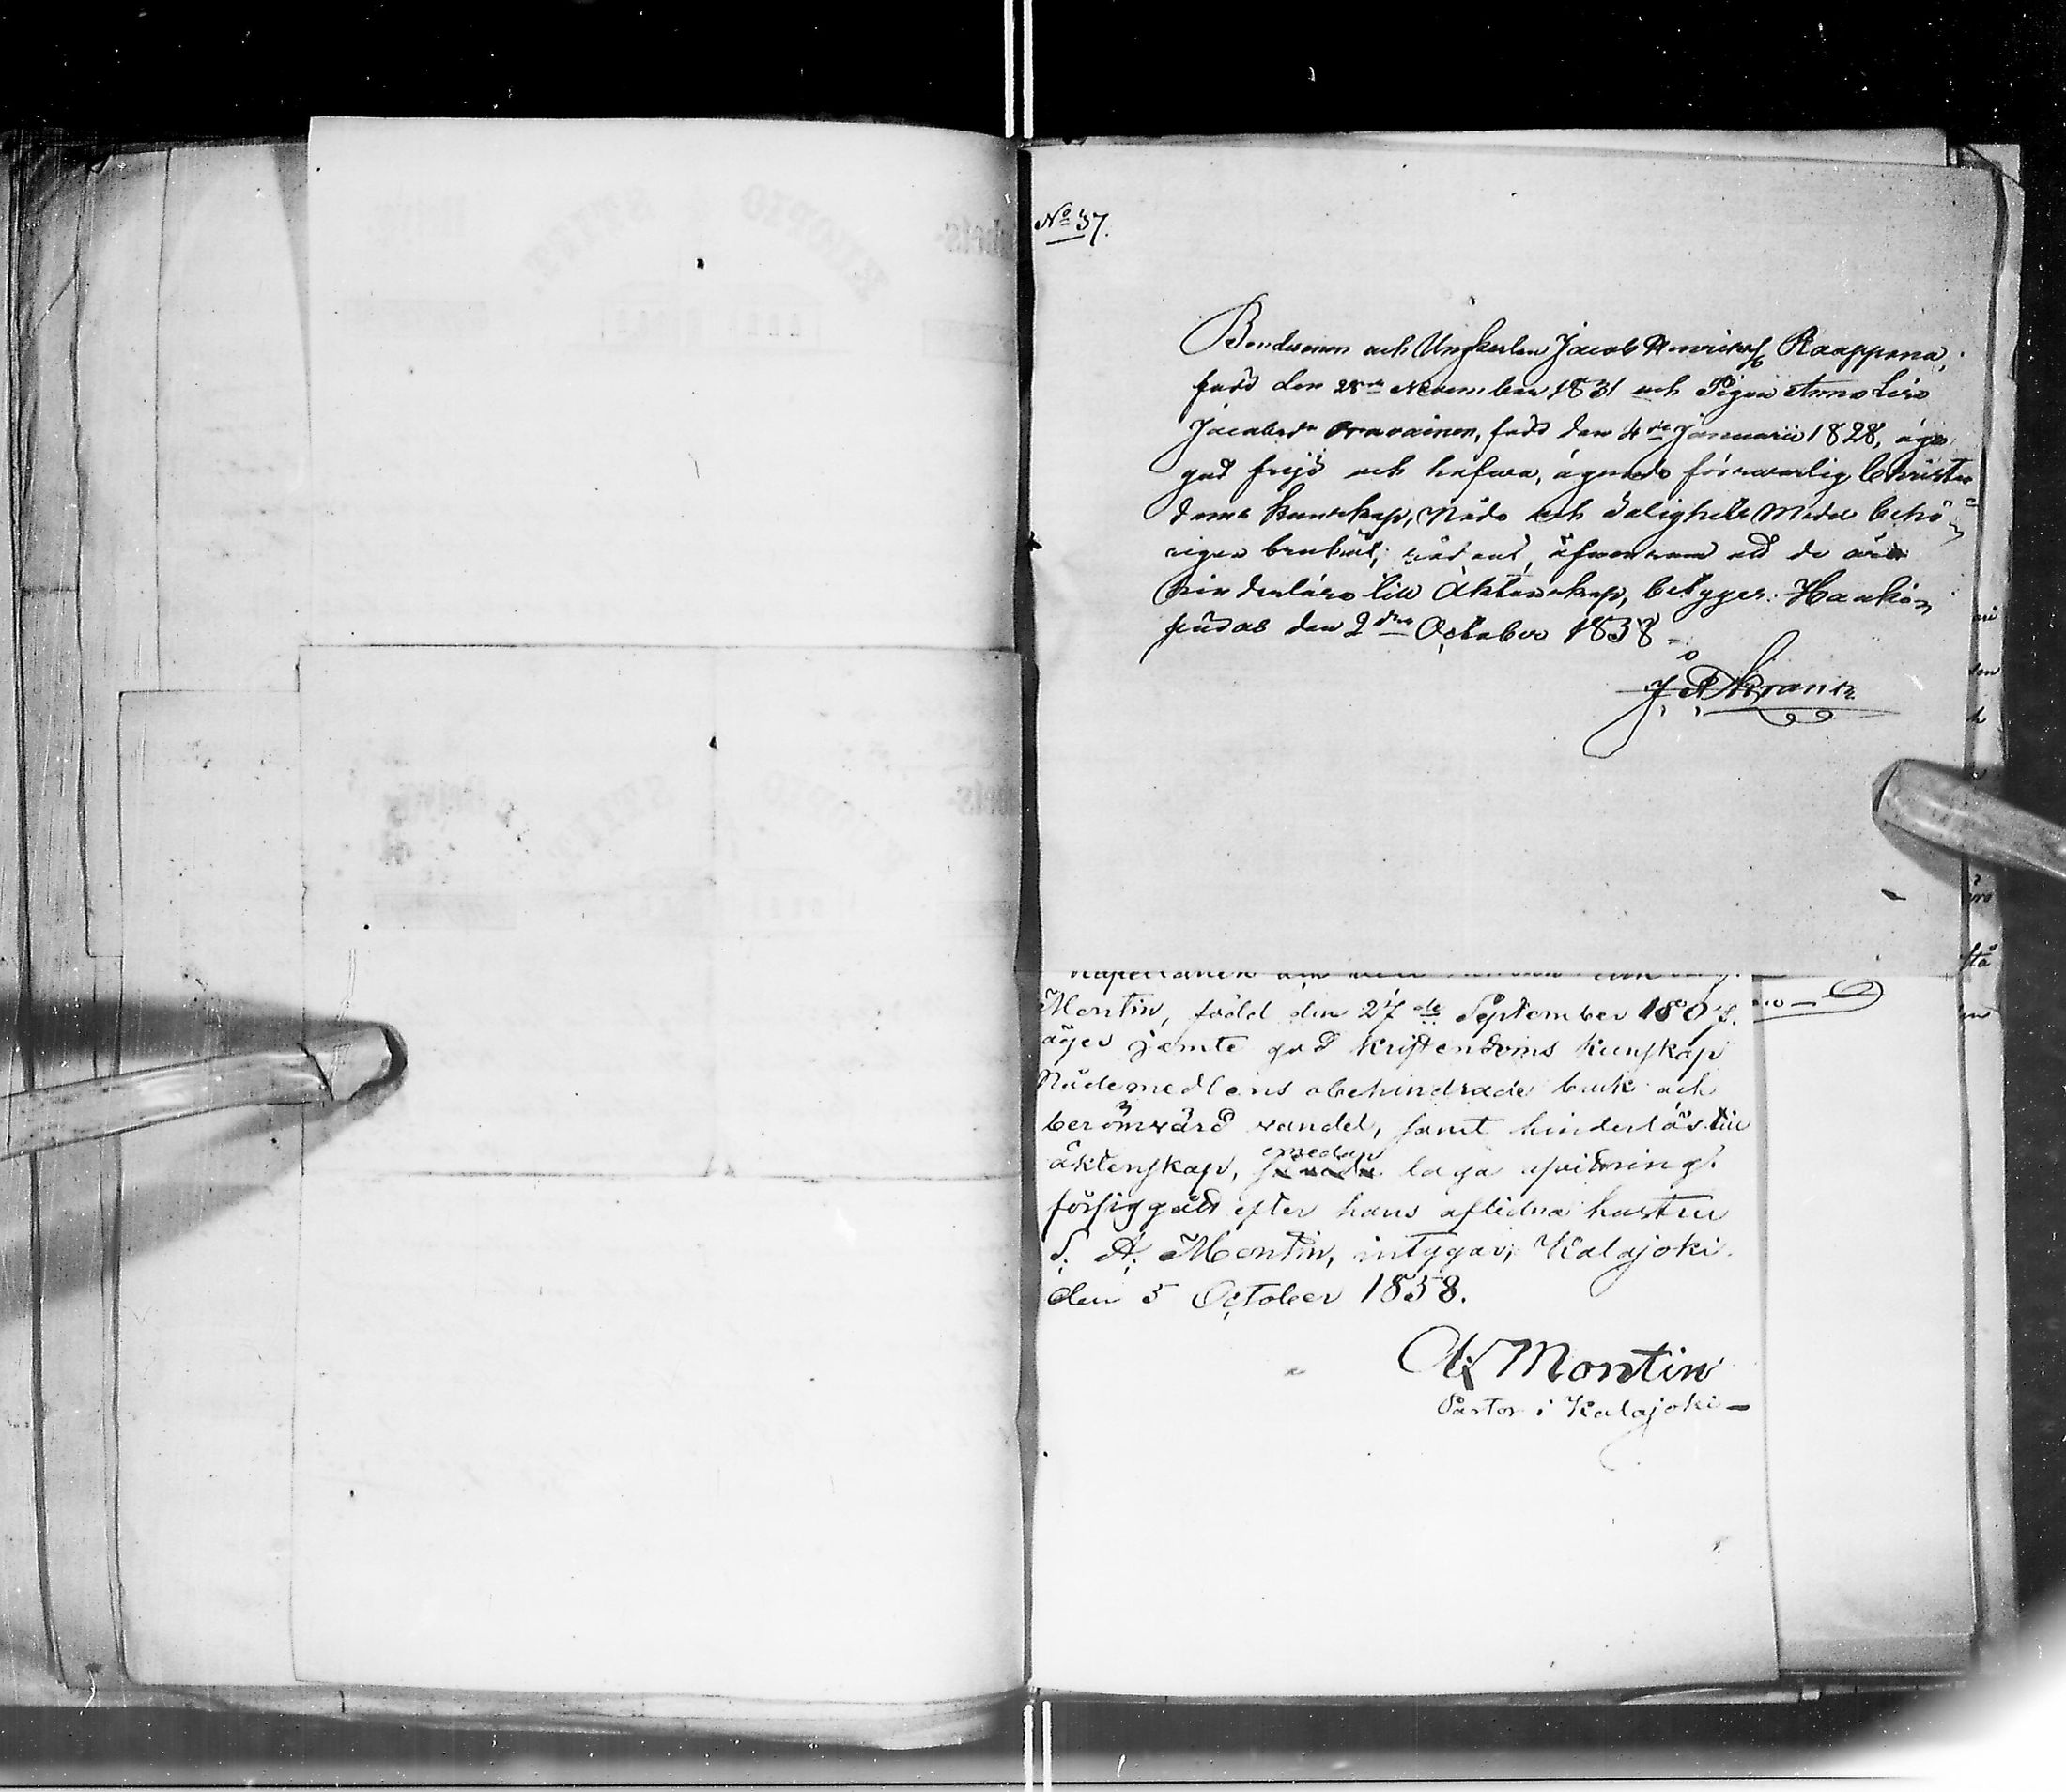 No 37.
Bondsonen och Ungkarlen Jacob Henricss Raappana,
född den 28de November 1831 och Pigan Anna Lisa
Jacobsdr Oravainen, född den 4de Januarii 1828, äga
god frejd och hafwa, ägande förswarlig Christen
doms kunskap, Nåde och Salighets Medel behö-
rigen brukat; äfwensom att de äro
hinderlöse till Äktenskap, betygger. Hauki-
pudas den 2dra October 1858
J A Krank
Montin, född den 27de September 1807.
äger jemte god kristendoms kunskap
Nådemedlens obehindrade bruk och
berömwärd vandel, samt hinderlös till
äktenskap, emedan laga afvittring
försiggått efter hans aflidna hustru
S. A. Montin, intygar; Kalajoki
den 5 October 1858.
Montin
Pastor i Kalajoki